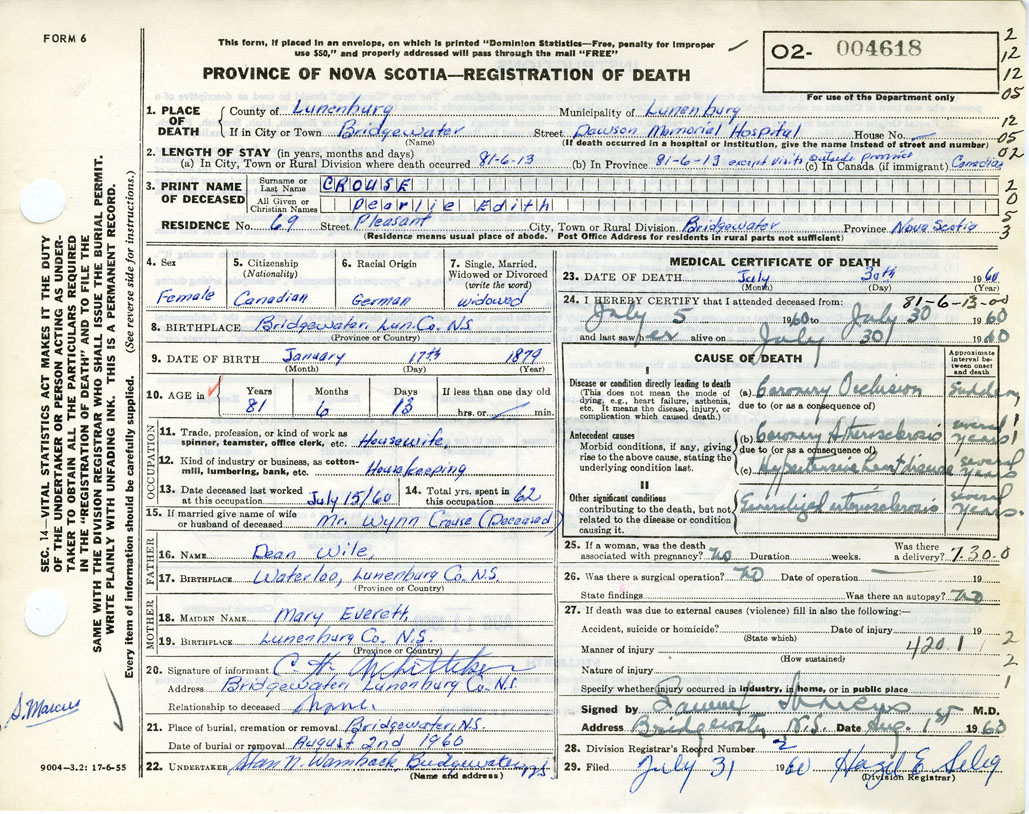 FORM 6
This form, if placed in an envelope, on which is printed "Dominion Statistics—Free, penalty for improper
use $50," and properly addressed will pass through the mail "FREE"
O2- 004618
For use of the Department only
PROVINCE OF NOVA SCOTIA—REGISTRATION OF DEATH
2
12
12
05
12
05
02
2
0
5
3
1. PLACE OF DEATH
County of Lunenburg Municipality of Lunenburg
If in City or Town Bridgewater Street Dawson Memorial Hospital House No.
(Name) (If death occurred in a hospital or Institution, give the name instead of street and number)
2. LENGTH OF STAY (in years, months and days)
(a) In City, Town or Rural Division where death occurred 81-6-13 (b) In Province 81-6-13 except visits outside province (c) In Canada (if immigrant) Canadian
3. PRINT NAME OF DECEASED
Surname or Last Name CROUSE
All Given or Christian Names Pearlie Edith
RESIDENCE No. 69 Street Pleasant City, Town or Rural Division Bridgewater Province Nova Scotia
(Residence means usual place of abode. Post Office Address for residents in rural parts not sufficient)
SEC. 14—VITAL STATISTICS ACT MAKES IT THE DUTY
OF THE UNDERTAKER OR PERSON ACTING AS UNDER-
TAKER TO OBTAIN ALL THE PARTICULARS REQUIRED
IN THE "REGISTRATION OF DEATH" AND TO FILE THE
SAME WITH THE DIVISION REGISTRAR WHO SHALL ISSUE THE BURIAL PERMIT.
WRITE PLAINLY WITH UNFADING INK. THIS IS A PERMANENT RECORD.
Every item of information should be carefully supplied. (See reverse side for instructions.)
4. Sex Female
5. Citizenship (Nationality) Canadian
6. Racial Origin German
7. Single, Married, Widowed or Divorced (write the word) widowed
8. BIRTHPLACE Bridgewater, Lun. Co. N.S.
(Province or Country)
9. DATE OF BIRTH January 17th 1879
(Month) (Day) (Year)
10. AGE in Years 81 Months 6 Days 13 If less than one day old hrs. or min.
OCCUPATION
11. Trade, profession or kind of work as spinner, teamster, office clerk, etc. Housewife
12. Kind of industry or business, as cotton-mill, lumbering, bank, etc. Housekeeping
13. Date deceased last worked at this occupation July 15/60
14. Total yrs. spent in this occupation 62
15. If married give name of wife or husband of deceased Mr. Wynn Crouse (Deceased)
FATHER
16. NAME Dean Wile
17. BIRTHPLACE Waterloo, Lunenburg Co. N.S.
(Province or Country)
MOTHER
18. MAIDEN NAME Mary Everett
19. BIRTHPLACE Lunenburg Co. N.S.
(Province or Country)
20. Signature of informant C. H.
Address Bridgewater, Lunenburg Co. N.S.
Relationship to deceased
21. Place of burial, cremation or removal Bridgewater, N.S.
Date of burial or removal August 2nd 1960
22. UNDERTAKER N. Wamback, Bridgewater N.S.
(Name and address)
S. Marcus
9004-3.2: 17-6-55
MEDICAL CERTIFICATE OF DEATH
23. DATE OF DEATH July 30th 1960
(Month) (Day) (Year)
24. I HEREBY CERTIFY that I attended deceased from: 81-6-13-00
July 5 1960 to July 30 1960
and last saw her alive on July 30 1960
CAUSE OF DEATH
Approximate interval between onset and death
I
Disease or condition directly leading to death
(This does not mean the mode of dying, e.g., heart failure, asthenia, etc. It means the disease, injury, or complication which caused death.)
(a) Coronary Occlusion Sudden
due to (or as a consequence of)
Antecedent causes
Morbid conditions, if any, giving rise to the above cause, stating the underlying condition last.
(b) Coronary Atherosclerosis several years
due to (or as a consequence of)
(c) Hypertensive heart disease several years
II
Other significant conditions
contributing to the death, but not related to the disease or condition causing it.
Generalized arteriosclerosis several years.
25. If a woman, was the death associated with pregnancy? no Duration weeks. Was there a delivery? 7.30.0
26. Was there a surgical operation? no Date of operation 19
State findings Was there an autopsy? no
27. If death was due to external causes (violence) fill in also the following:—
Accident, suicide or homicide? Date of injury 19
(State which)
Manner of injury 420.1
(How sustained)
2
2
1
Nature of injury
Specify whether injury occurred in industry, in home, or in public place
Signed by Samuel Marcus M.D.
Address Bridgewater N.S. Date Aug. 1st 1960
28. Division Registrar's Record Number 2
29. Filed July 31 1960 Hazel E Seleg
(Division Registrar)